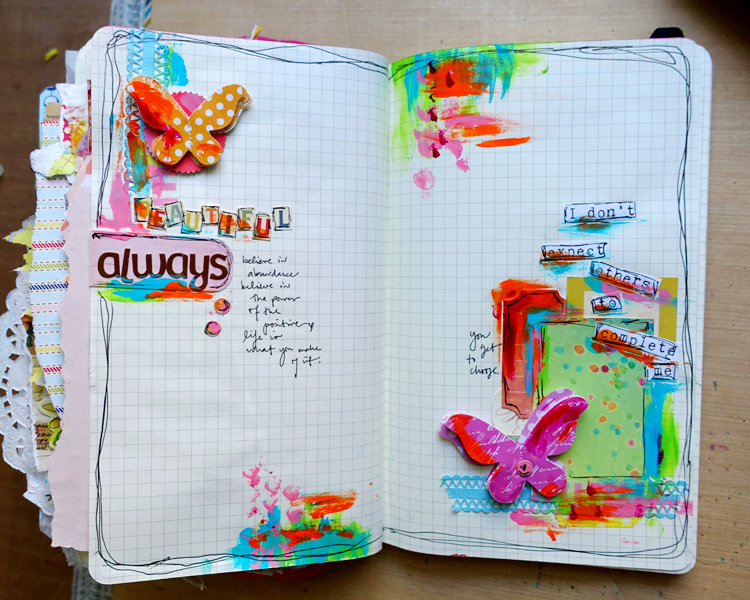 BEAUTIFUL
always
believe in
abundance
believe in
the power
of the
positive
life is
what you make
of it.
I don't
expect
others
to
complete
me
you
get
to
choose.